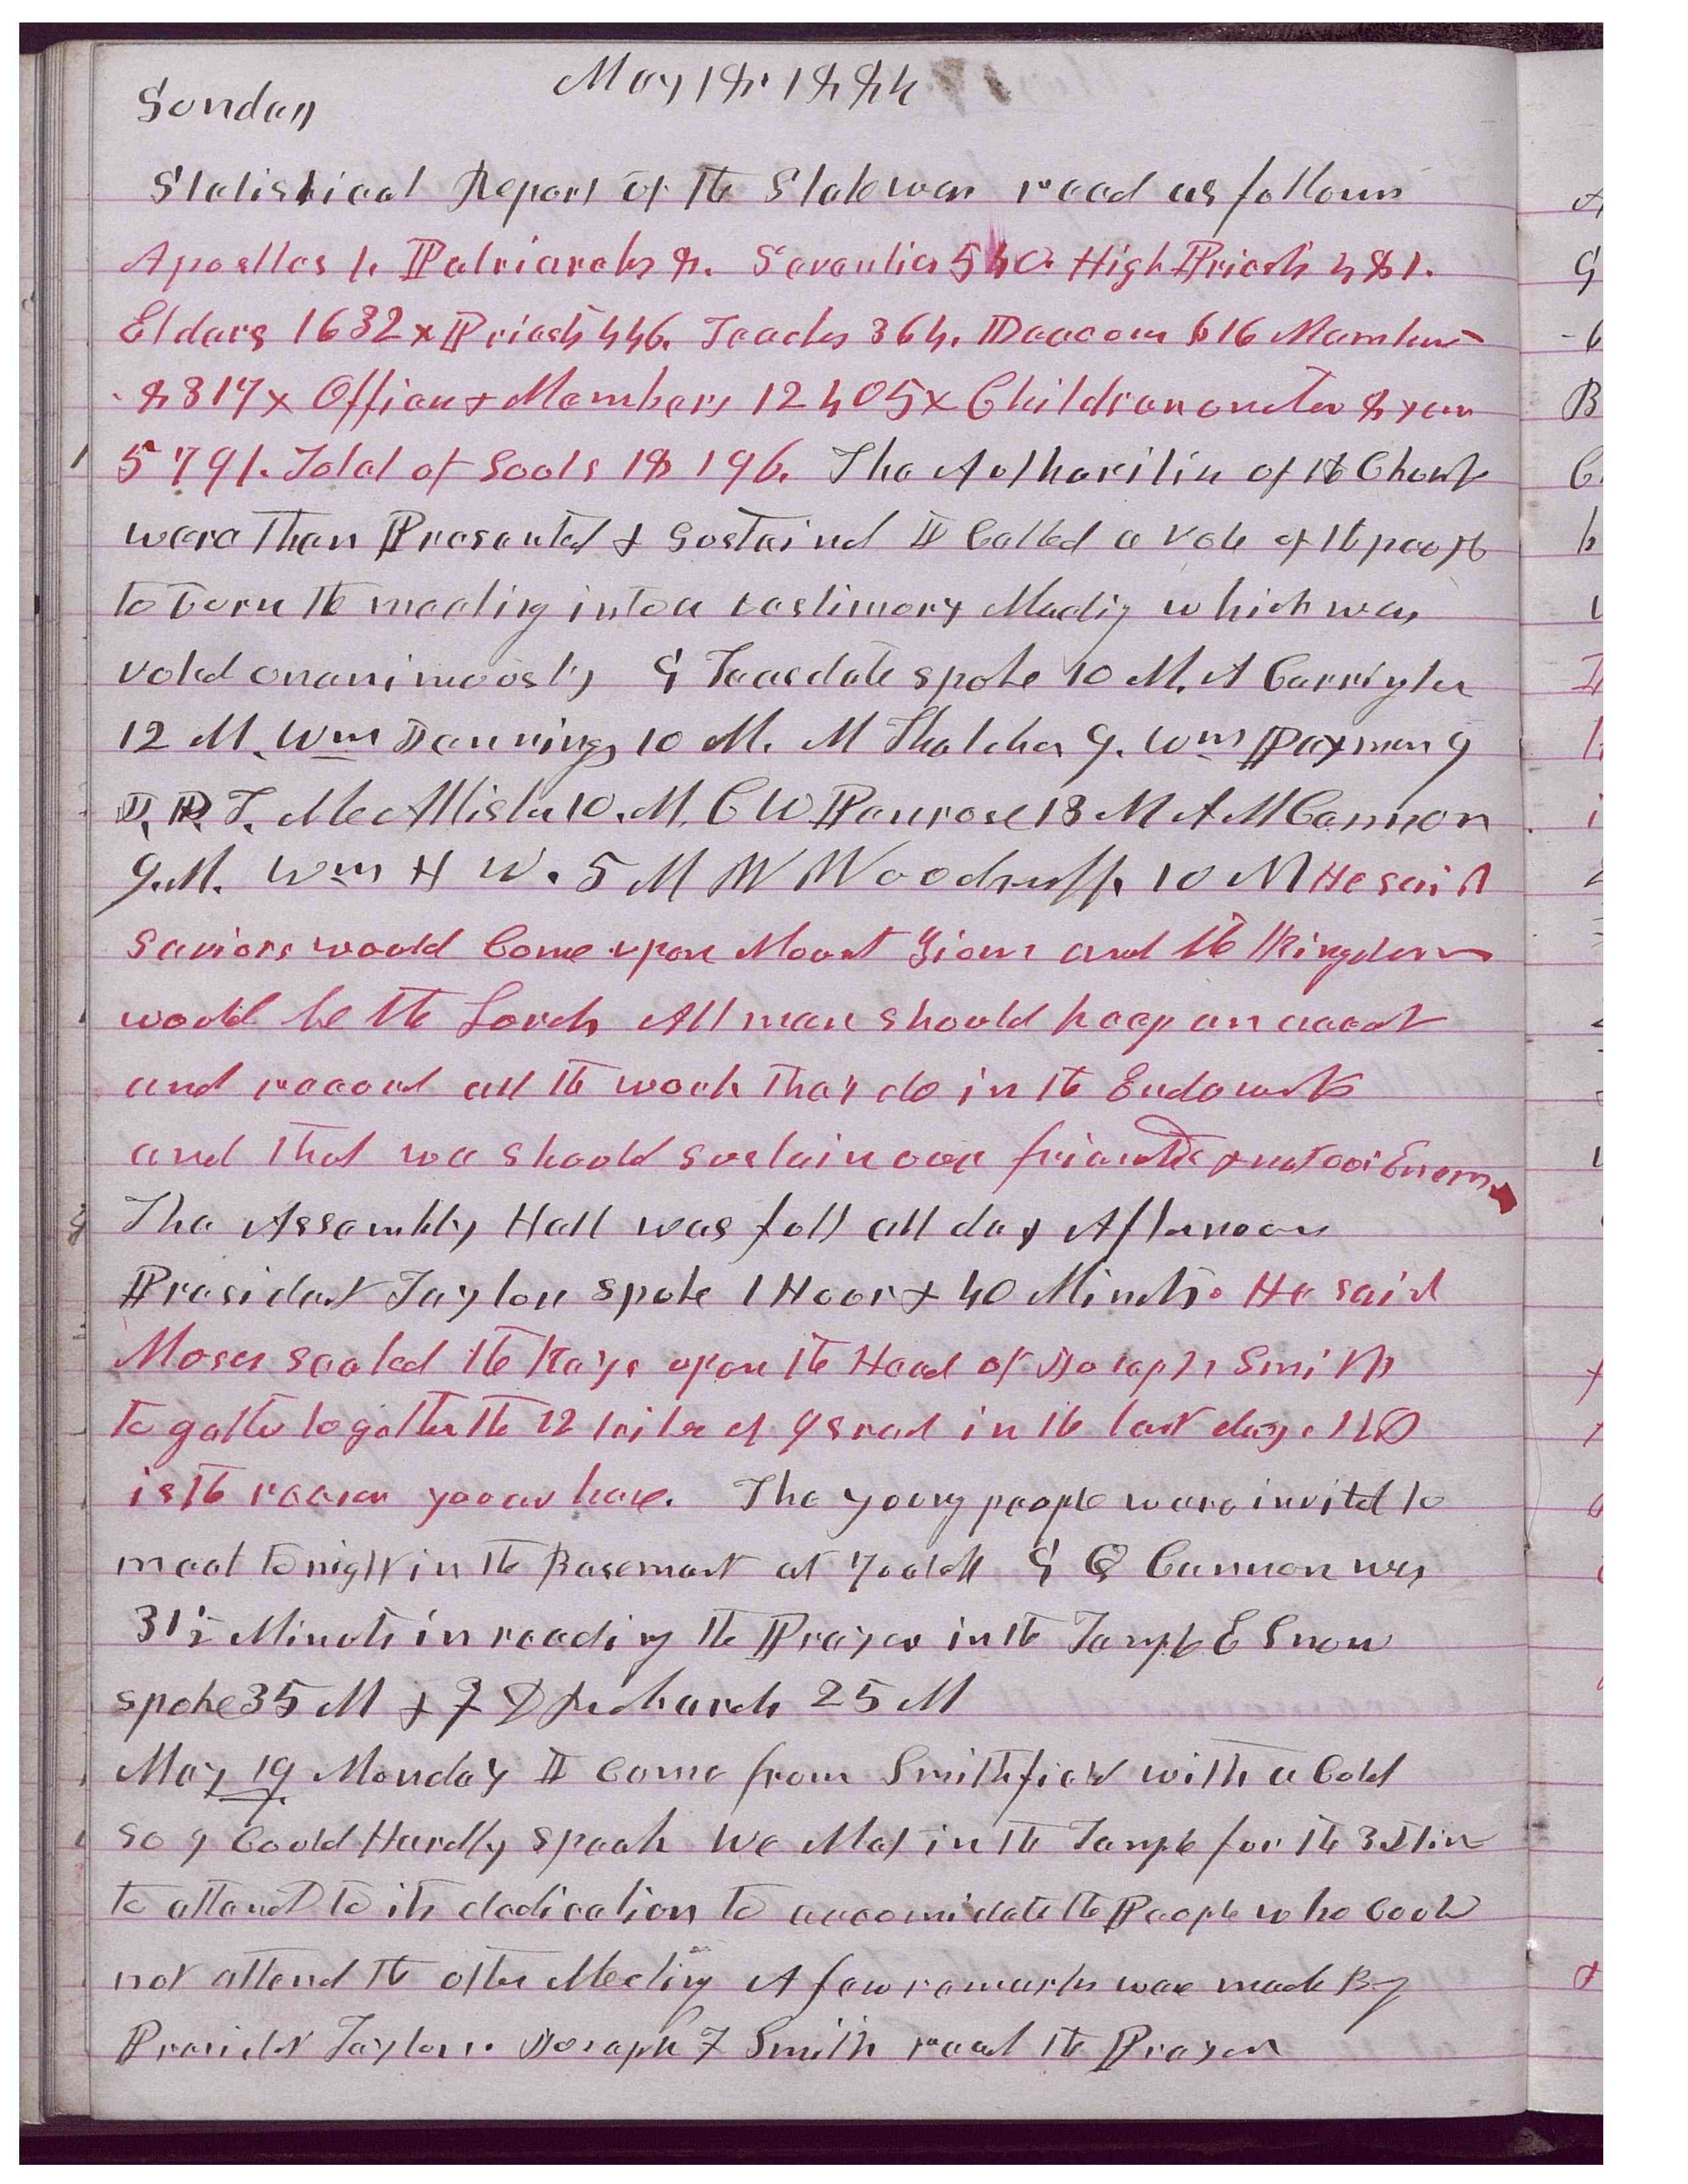 May 18. 1884
Sunday
Statistical Report of the Stake was read as follows
Apostles 1. Patriarchs 8. Seventies 540. High Priests 481.
Elders 1632 x Priests 446. Teachers 364. Deacons 616 Members
8317 x Officers & Members 12405 x Children under 8 years
5791. Total of Souls 18196. The Authorities of the Church
were then Presented & Sustaind I Called a vote of the people
to turn the meeting into a testimony Meeting which was
voted unanimously G Teasdale spoke 10 M. A Carrington
12 M. Wm Jennings 10 M. M Thatcher 9. Wm Paxman 9
J. D. T. McAllister 10. M. C W Penrose 13 M A M Cannon
9. M. Wm H W. 5 M W Woodruff. 10 M He said
Saviors would Come upon Mount Zion and the Kingdom
would be the Lords All men should keep an account
and record all the work they do in the Endowments
and that we should sustain our friends & not our Enemy
The Assembly Hall was full all day Afternoon
President Taylor spoke 1 Hour & 40 Minuts. He said
Moses sealed the keys upon the Head of Joseph Smith
to gather together the 12 tribes of Israel in the last days
is the reason you are here. The young people were invited to
meet tonight in the Basement at 7 oclok G Q Cannon was
31½ Minuts in reading the Prayer in the Temple E Snow
spoke 35 M & F D Richards 25 M
May 19 Monday I came from Smithfield with a Cold
so I Could Hardly speak We Met in the Temple for the 3d time
to attend to its dedication to accomidate the People who Could
not attend the other Meeting A few remarks ware made By
President Taylor. Joseph F Smith read the Prayer